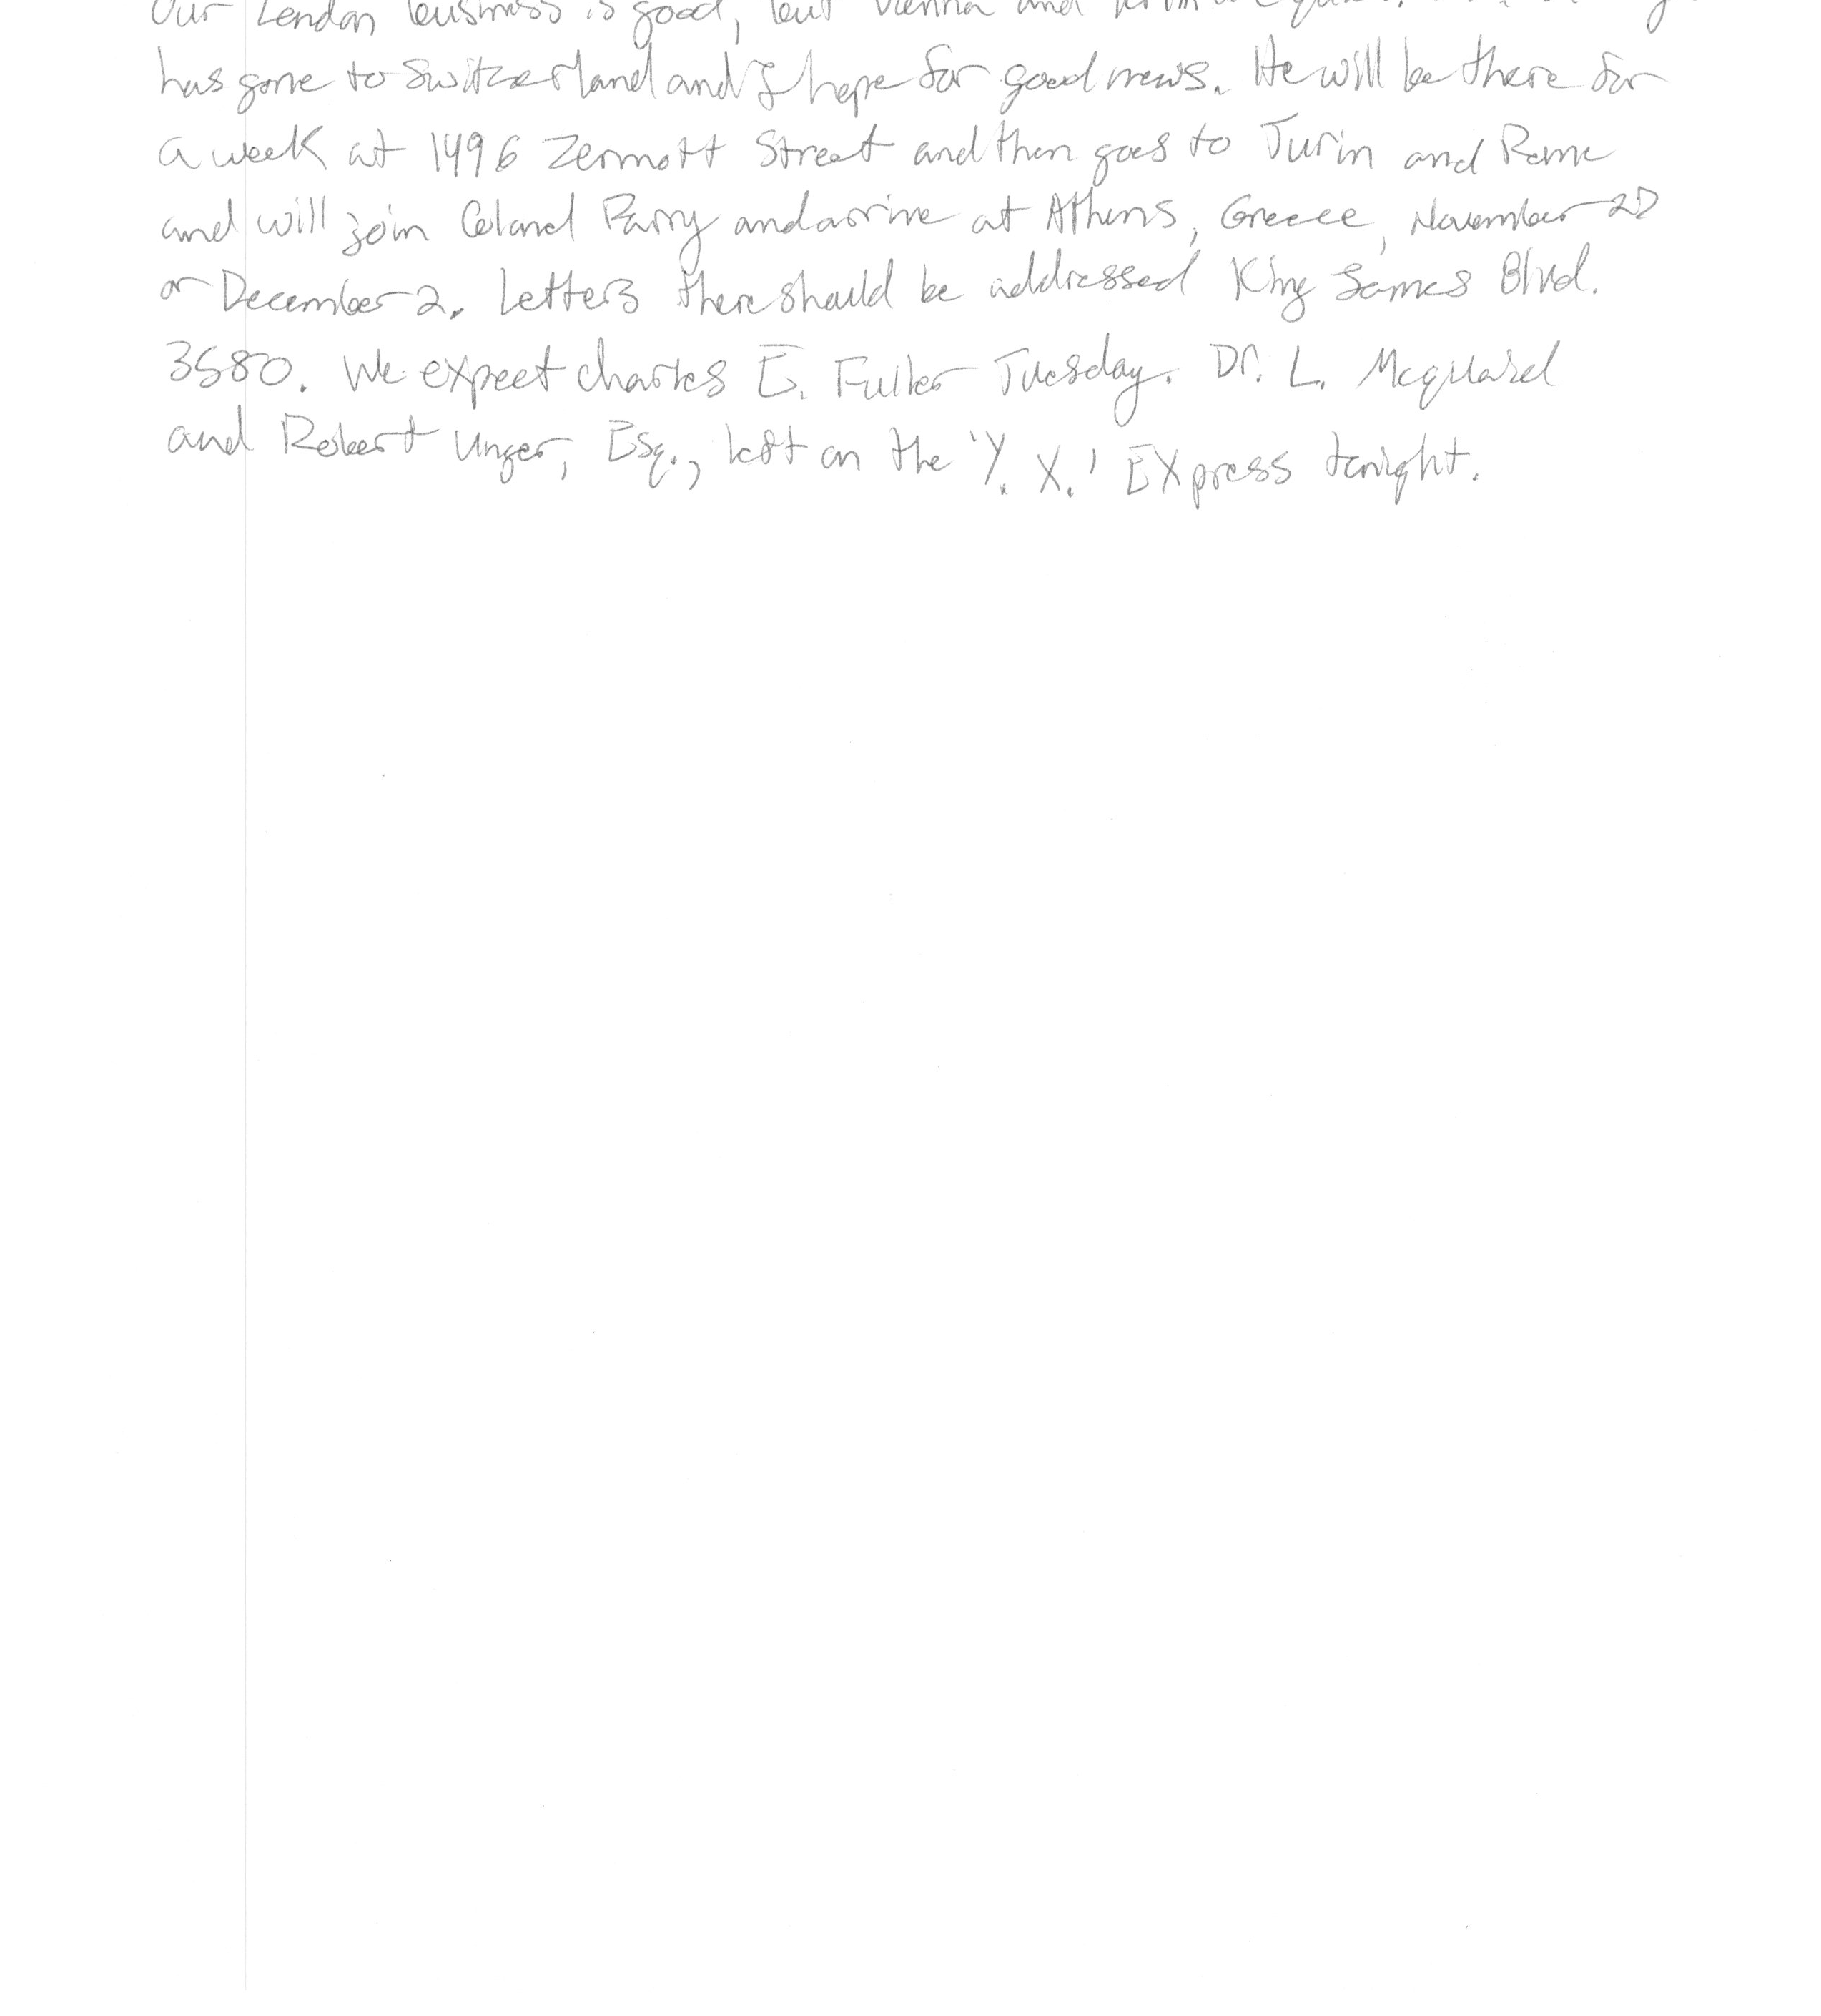 Our London business is good, but Vienna and
has gone to Switzerland and I hope for good news. He will be there for
a week at 1496 Zermott Street and then goes to Turin and Rome
and will join Colonel Parry and arrive at Athens, Greece, November 27
or December 2. Letters there should be addressed King James Blvd.
3580. We expect Charles E. Fuller Tuesday. Dr. L. McQuaid
and Robert Unger, Esq., left on the 'Y. X.' Express tonight.